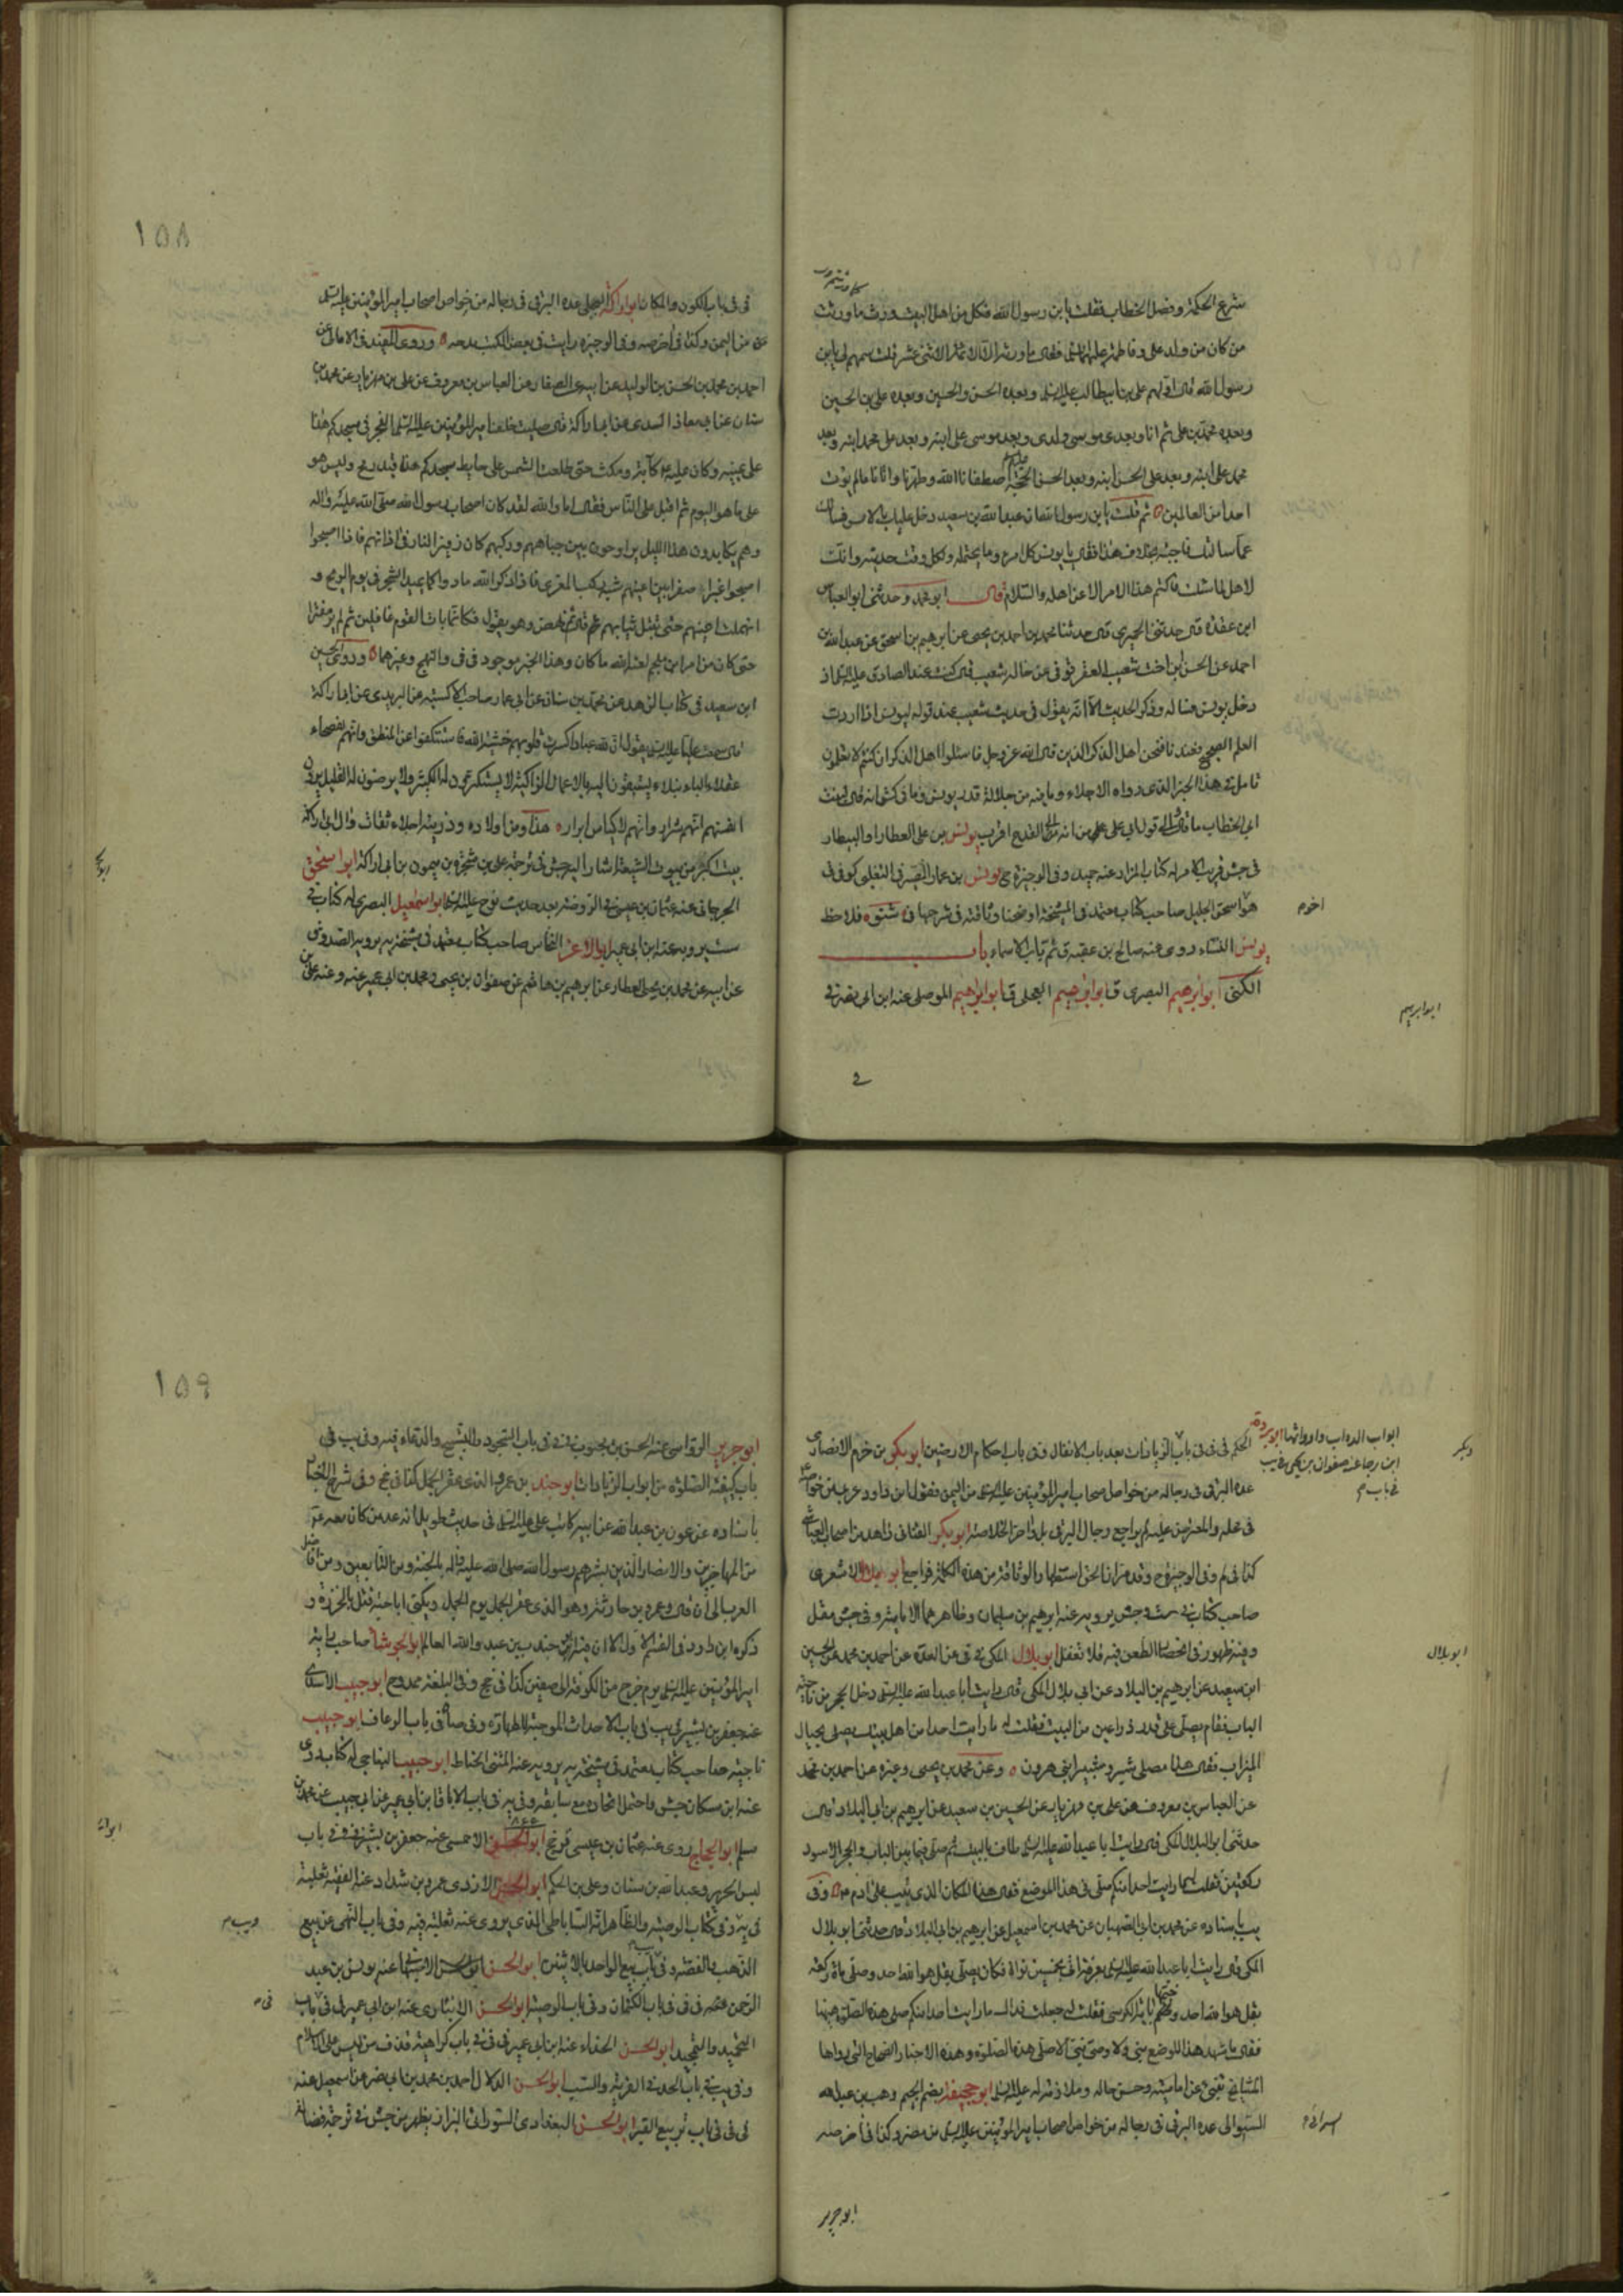 شرع الحكمة وفصل الخطاب فقلت يا بن رسول الله فكل من اهل البيت ورث ما ورثت
من كان من ولد علي وفاطمة عليهما السلام فقال ما ورثه الا الائمة الاثنى عشر قلت سمهم لي يا بن
رسول الله قال اولهم علي بن ابيطالب عليه السلام وبعده الحسن والحسين وبعده علي بن الحسين
وبعده محمد بن علي ثم انا وبعدي موسى ولدي وبعد موسى علي ابنه وبعد علي محمد ابنه وبعد
محمد علي ابنه وبعد علي الحسن ابنه وبعد الحسن الحجة اصطفانا الله وطهرنا واتانا ما لم يؤت
احدا من العالمين ثم قلت يا بن رسول الله ان عبد الله بن سعيد دخل عليك بالامس فسالك
عما سالتك فاجبته بخلاف هذا فقال يا يونس كل امرء وما يحتمله ولكل وقت حديثه وانك
لاهل لما سئلت فاكتم هذا الامر الا عن اهله والسلام قال ابو محمد وحدثنى ابو العباس
ابن عقدة قال حدثنى الحميري قال حدثنا محمد بن احمد بن يحيى عن ابرهيم بن اسحق عن عبد الله بن
احمد عن الحسن ابن اخت شعيب العقرقوفى عن خاله شعيب قال كنت عند الصادق عليه السلام اذ
دخل يونس فساله وذكر الحديث الا انه يقول في حديث شعيب عند قوله ليونس اذا اردت
العلم الصحيح فعندنا فنحن اهل الذكر الذين قال الله عز وجل فاسئلوا اهل الذكر ان كنتم لا تعلمون
تامل في هذا الخبر الذي رواه الاجلاء وما فيه من جلالة قدر يونس وما في كش انه قال لبنت
ابي الخطاب ما قال قول ابي علي من انه الى القدح اقرب يونس بن علي العطار او البيطار
في جش قريب الامر له كتاب المزار عنه حميد وفي الوجيزة ح يونس بن عمار الصيرفي التغلبي كوفي ق
هو اسحق الجليل صاحب كتاب معتمد في المشيخة اوضحنا وثاقته في شرحها في شنو فلاحظ
يونس النساء روى عنه صالح بن عقبة ق ثم باب الاسماء باب
الكنى ابو ابرهيم البصري ق ابو ابرهيم العجلي ق ابو ابرهيم الموصلي عنه ابن ابي نصر في
اخوه
ابو ابرهيم
في
١٥٨
في في باب الكون والمكان ابو اراكة البجلي عده البرقي في رجاله من خواص اصحاب امير المؤمنين عليه السلم
من اليمن وكذا في اخر صه وفي الوجيزة رايت في بعض الكتب مدحه وروى المفيد في الامالي عن
احمد بن محمد بن الحسن بن الوليد عن ابيه عن الصفار عن العباس بن معروف عن علي بن مهزيار عن محمد بن
سنان عن ابي معاذ السدي عن ابي اراكة قال صليت خلف امير المؤمنين عليه السلم الفجر في مسجدكم هذا
على يمينه وكان عليه كآبة ومكث حتى طلعت الشمس على حايط مسجدكم هذا قيد رمح وليس هو
على ما هو اليوم ثم اقبل على الناس فقال اما والله لقد كان اصحاب رسول الله صلى الله عليه واله
وهم يكابدون هذا الليل يراوحون بين جباههم وركبهم كان زفير النار في اذانهم فاذا اصبحوا
اصبحوا غبرا صفرا بين اعينهم شبه ركب المعزى فاذا ذكر الله مادوا كما يميد الشجر في يوم الريح و
انهملت اعينهم حتى تبتل ثيابهم ثم نهض وهو يقول فكانما بات القوم غافلين ثم لم ير مفترا
حتى كان من امر ابن ملجم لعنه الله ما كان وهذا الخبر موجود في في والنهج وغيرهما وروى الحسين
ابن سعيد في كتاب الزهد عن محمد بن سنان عن ابي عمار صاحب الاكسية عن البريدي عن ابي اراكة
قال سمعت عليا عليه السلم يقول ان لله عبادا كسرت قلوبهم خشية الله فاستنكفوا عن المنطق وانهم لفصحاء
عقلاء الباء نبلاء يستبقون اليه بالاعمال الزاكية لا يستكثرون له الكثير ولا يرضون له القليل يرون
انفسهم انهم شرار وانهم لاكياس ابرار هذا ومن اولاده وذريته اجلاء ثقات وال ابي اراكة
بيت كبير من بيوت الشيعة اشار اليه جش في ترجمة علي بن شجرة بن ميمون بن ابي اراكة ابو اسحق
الجرجاني عنه عثمان بن عيسى في الروضة بعد حديث نوح عليه السلم ابو اسمعيل البصري له كتاب في
ست يرويه عنه ابن ابي عمير ابو الاعز النخاس صاحب كتاب معتمد في مشيخة يه يرويه الصدوق
عن ابيه عن محمد بن يحيى العطار عن ابرهيم بن هاشم عن صفوان بن يحيى ومحمد بن ابي عمير عنه وعنه علي بن
ابواب الدواب وادواتها ابو بردة
ابن رجا عنه صفوان بن يحيى في يب
في باب
الحكم في في في باب الزيادات بعد باب الانفال وفي باب احكام الارضين ابو بكر بن حزم الانصاري
عده البرقي في رجاله من خواص اصحاب امير المؤمنين عليه السلم من اليمن فقول ابن داود غير بين خواصه
في محله والمعترضين عليه لم يراجع رجال البرقي بل واخر الخلاصة ابو بكر القناني زاهد من اصحاب العياشي
كذا في لم وفي الوجيزة ح وقد مر انا نحن استظهار الوثاقة من هذه الكلمة فراجع ابو بلال الاشعري
صاحب كتاب في ست وجش يرويه عنه ابرهيم بن سليمان وظاهرهما الامامية وفي جش مقل
وفيه ظهور في انحصار الطعن فيه فلا تغفل ابو بلال المكي في قى عن العدة عن احمد بن محمد عن الحسين
ابن سعيد عن ابرهيم بن ابي البلاد عن ابي بلال المكي قال رايت ابا عبد الله عليه السلم دخل الحجر من ناحية
الباب فقام يصلي على قدر ذراعين من البيت فقلت له ما رايت احدا من اهل بيتك يصلي بحيال
الميزاب فقال هذا مصلى شبير وشبر ابني هرون وعن محمد بن يحيى وغيره عن احمد بن محمد
عن العباس بن معروف عن علي بن مهزيار عن الحسين بن سعيد عن ابرهيم بن ابي البلاد قال
حدثنى ابو بلال المكي قال رايت ابا عبد الله عليه السلم طاف بالبيت ثم صلى فيما بين الباب والحجر الاسود
ركعتين فقلت له ما رايت احدا منكم صلى في هذا الموضع فقال هذا المكان الذي تيب على ادم فيه وفي
يب باسناده عن محمد بن ابي الصهبان عن محمد بن اسمعيل عن ابرهيم بن ابي البلاد قال حدثنى ابو بلال
المكي قال رايت ابا عبد الله عليه السلم بعرفة اتى بخمسين نواة فكان يصلي بقل هو الله احد وصلى ماة ركعة
بقل هو الله احد وختمها باية الكرسي فقلت له جعلت فداك ما رايت احدا منكم صلى هذه الصلوة هيهنا
فقال ما شهد هذا الموضع نبي ولا وصي نبي الا صلى هذه الصلوة وهذه الاخبار الصحاح التي رواها
المشايخ تنبئ عن اماميته وحسن حاله وملازمته له عليه السلم ابو جحيفة بضم الجيم وهب بن عبد الله
السوائي عده البرقي في رجاله من خواص اصحاب امير المؤمنين عليه السلم من مضر وكذا في اخر صه
ابو بلال
السوائي
ابو جرير
١٥٩
ابو جرير الرواسي عنه الحسن بن محبوب في في في باب السجود والتسبيح والدعاء فيه وفي يب في
باب كيفية الصلوة من ابواب الزيادات ابو جند بن عمرو الذي عقر الجمل كذا في مح وفي شرح
باسناده عن عون بن عبد الله عن ابيه كاتب علي عليه السلم في حديث طويل انه عد من كان معه
من المهاجرين والانصار الذين بشرهم رسول الله صلى الله عليه واله بالجنة ومن التابعين ومن افاضل
العرب الى ان قال وعمرو بن حارثة وهو الذي عقر الجمل يوم الجمل ويكنى ابا حبة و
ذكره ابن داود في القسم الاول الا ان فيه ابن جندب بن عبد والله العالم ابو الجوشاء صاحب راية
امير المؤمنين عليه السلم يوم خرج من الكوفة الى صفين كذا في مح وفي البلغة ممدوح ابو حبيب الاسدي
عنه جعفر بن بشير في يب في باب الاحداث الموجبة للطهارة وفي صا في باب الرعاف ابو حبيب
ناجية صاحب كتاب معتمد في مشيخة يه يرويه عنه المثنى الحناط ابو حبيب النباجي له كتاب روى
عنه ابن مسكان جش واحتمل اتحاده مع سابقه وفي يه في باب الاباق ابن ابي عمير عن ابي حبيب عن محمد بن
مسلم ابو الحجاج روى عنه عثمان بن عيسى ق مح ابو الحسن الاحمسي عنه جعفر بن بشير في في في باب
لبس الحرير وعبد الله بن سنان وعلي بن الحكم ابو الحسن الازدي عمرو بن شداد عنه الفقيه ثعلبة
في يه وفي كتاب الوصية والظاهر انه الساباطي الذي يروي عنه ثعلبة فيه وفي باب النهي عن بيع
الذهب بالفضة وفي باب بيع الواحد بالاثنين ابو الحسن عنه يونس بن عبد
الرحمن عنه في في في باب الكتمان وفي باب الوصية ابو الحسن الانباري عنه ابن ابي عمير في في باب
التحميد والتمجيد ابو الحسن الحذاء عنه ابن ابي عمير في في في باب كراهية قذف من ليس على الاسلام
وفي يب في باب الحد في الفرية والسب ابو الحسن الدلال احمد بن محمد بن ابي نصر عن اسمعيل عنه
في في في باب تربيع القبر ابو الحسن البغدادي السوراني البزاز يظهر من جش في ترجمة فضالة